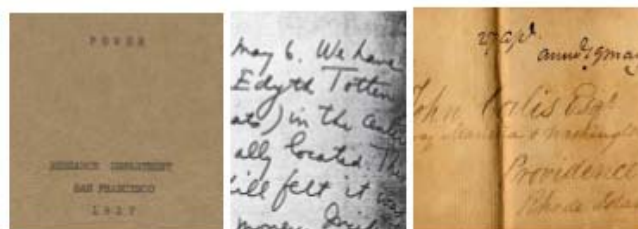 POWER
RESEARCH DEPARTMENT
SAN FRANCISCO
1927
May 6. We have
Edyth Totten
ats) in the center
ally located. The
ill felt it was
money.
27 apl.
John Corlis Esqr
Providence
Rhode Island